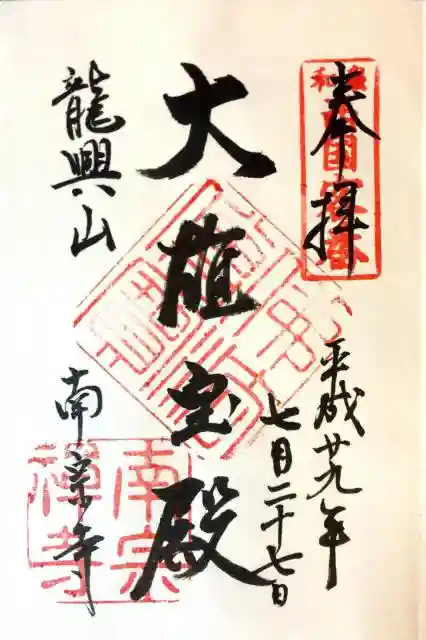 奉拝
平成廿九年
七月二十七日
大雄宝殿
龍興山
南宗寺
南宗
禅寺